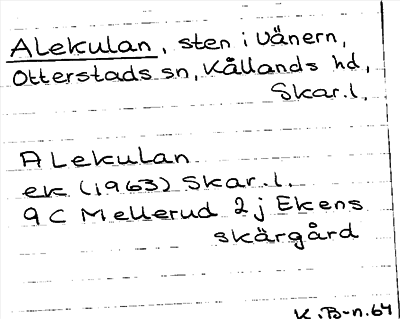 Alekulan, sten i Vänern,
Otterstads sn, Kållands hd,
Skar.l.
Alekulan
ek (1963) Skar.l.
9 C Mellerud 2 j Ekens
skärgård
K.B-n.64